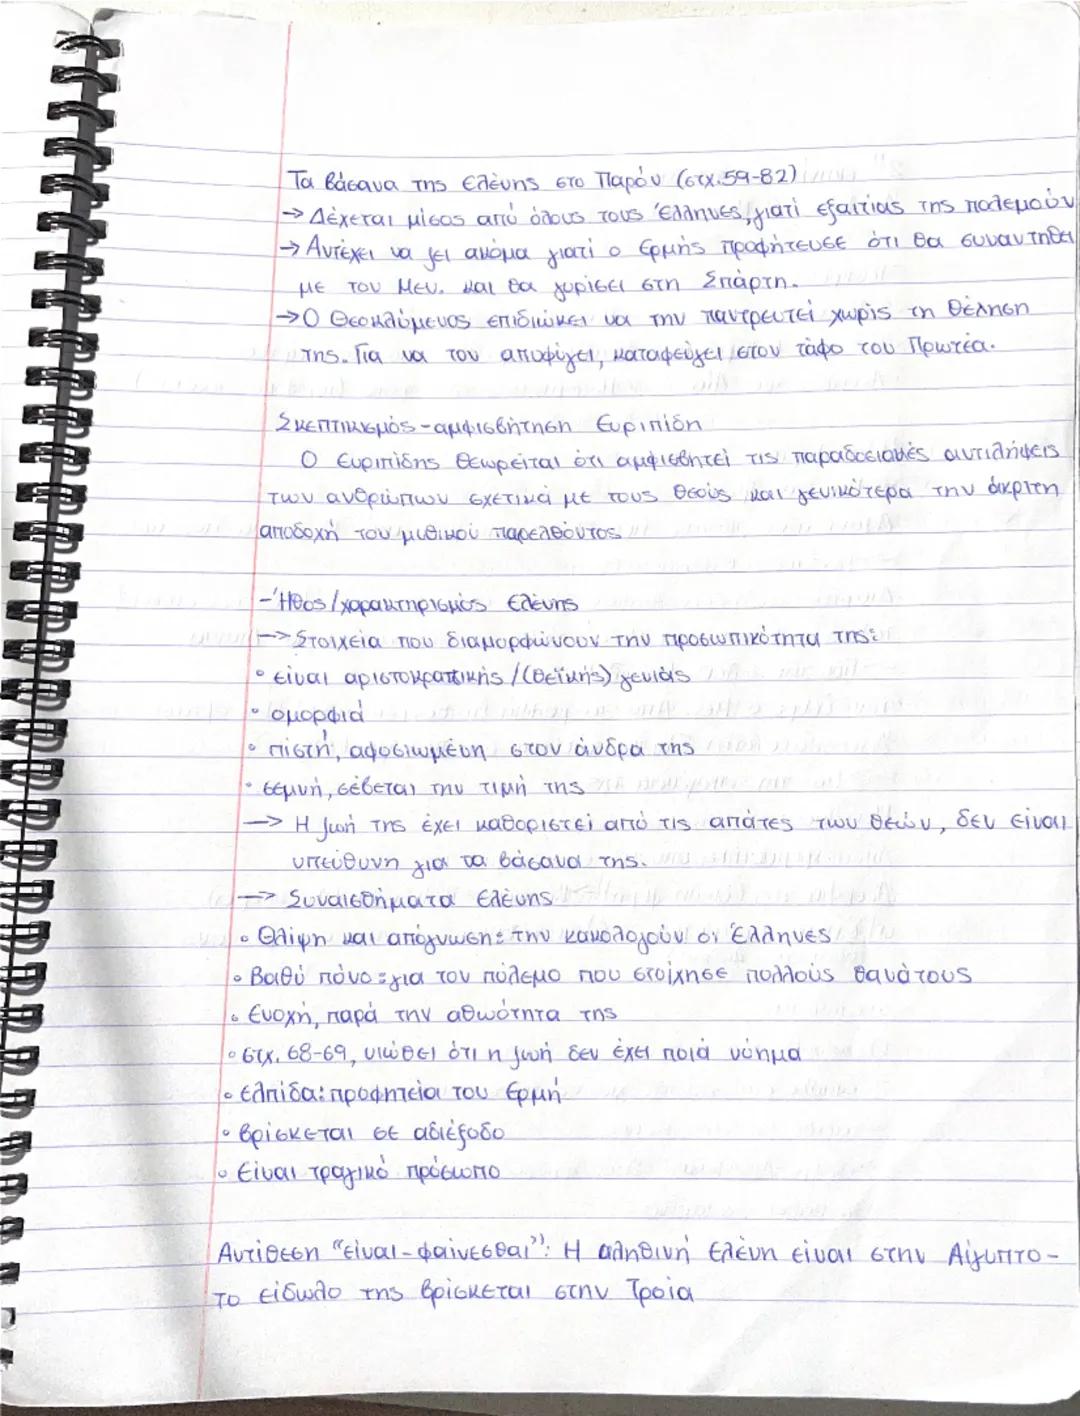 Τα βάσανα της Ελένης στο Παρόν (στχ.59-82)
→ Δέχεται μίσος από όλους τους Έλληνες, γιατί εξαιτίας της πολεμούν
→ Αντέχει να ζει ακόμα γιατί ο Ερμής προφήτευσε ότι θα συναντηθεί
με τον Μεν. και θα γυρίσει στη Σπάρτη.
→ Ο Θεοκλύμενος επιδιώκει να την παντρευτεί χωρίς τη θέληση
της. Για να τον αποφύγει, καταφεύγει στον τάφο του Πρωτέα.
Σκεπτικισμός - αμφισβήτηση Ευριπίδη
Ο Ευριπίδης θεωρείται ότι αμφισβητεί τις παραδοσιακές αντιλήψεις
των ανθρώπων σχετικά με τους θεούς και γενικότερα την άκριτη
αποδοχή του μυθικού παρελθόντος
- Ήθος/χαρακτηρισμός Ελένης
→ Στοιχεία που διαμορφώνουν την προσωπικότητα της:
• είναι αριστοκρατικής /(θεϊκής) γενιάς
• ομορφιά
• πιστή, αφοσιωμένη στον άνδρα της
• σεμνή, σέβεται την τιμή της
→ Η ζωή της έχει καθοριστεί από τις απάτες των θεών, δεν είναι
υπεύθυνη για τα βάσανα της.
→ Συναισθήματα Ελένης
• Θλίψη και απόγνωση: την κακολογούν οι Έλληνες
• Βαθύ πόνο: για τον πόλεμο που στοίχησε πολλούς θανάτους
• Ενοχή, παρά την αθωότητα της
• στχ. 68-69, νιώθει ότι η ζωή δεν έχει ποιά νόημα
• Ελπίδα: προφητεία του Ερμή
• Βρίσκεται σε αδιέξοδο
• Είναι τραγικό πρόσωπο
Αντίθεση "είναι-φαίνεσθαι": Η αληθινή Ελένη είναι στην Αίγυπτο -
το είδωλο της βρίσκεται στην Τροία